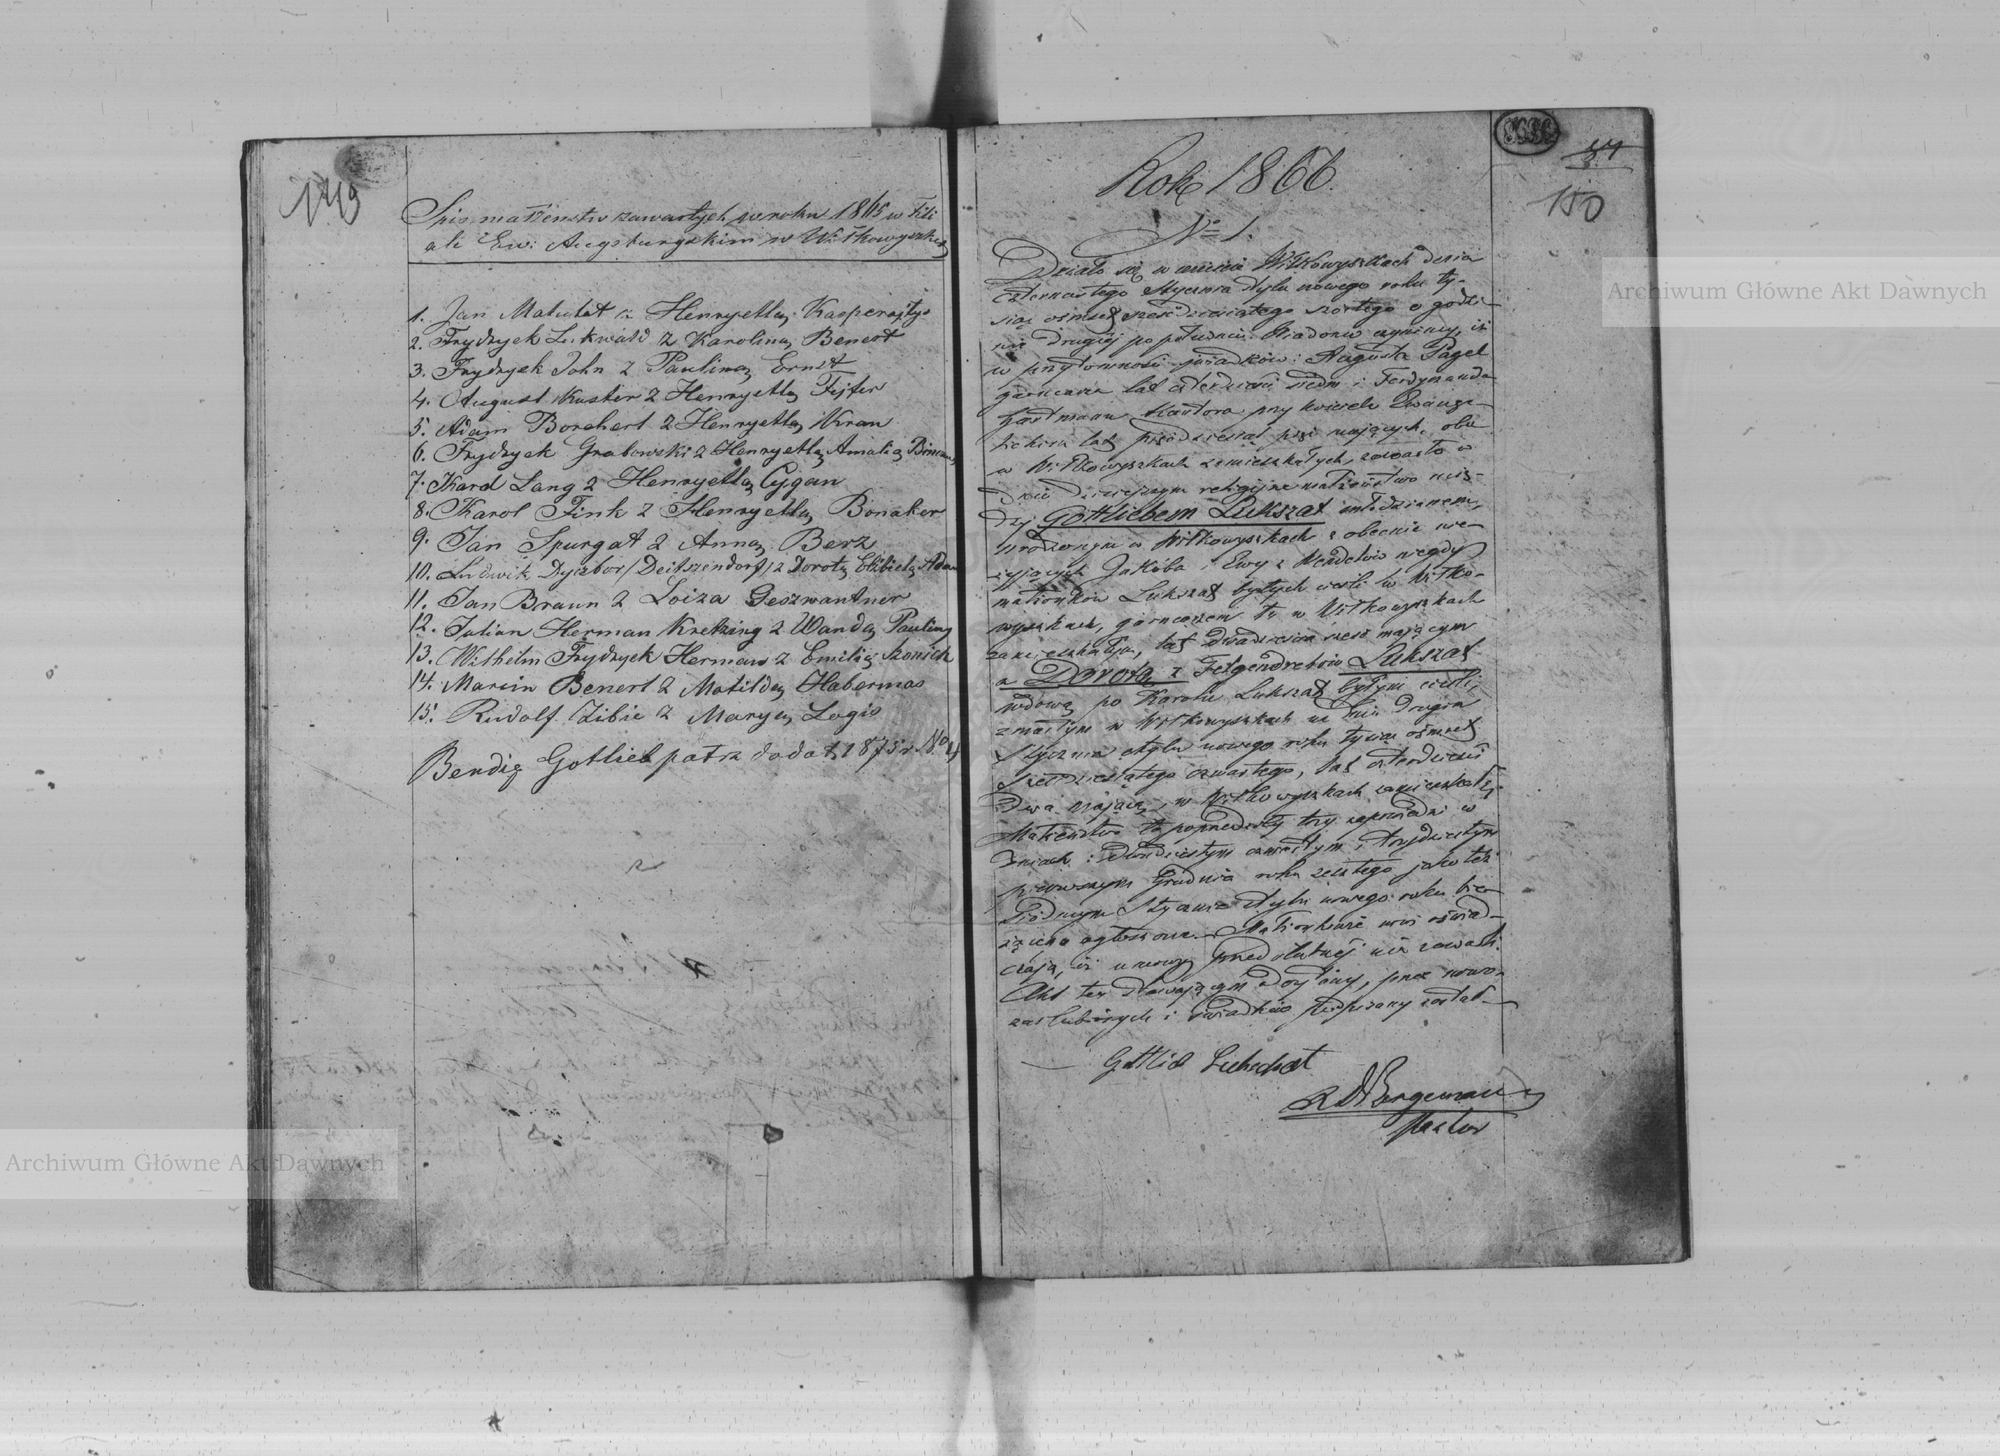 149
Spis małżeństw zawartych w roku 1865 w Fili
ale Ew: Augsburgskim w Wiłkowyszkach
1. Jan Matulat z Henryettą Kasperajtys
2. Frydryk Lukwald z Karoliną Benert
3. Frydryk John z Pauliną Ernst
4. August Kuster z Henryettą Fejfer
5. Adam Borchert z Henryettą Kran
6. Frydryk Grabowski z Henryettą Amalią
7. Karol Lang z Henryettą Cygan
8. Karol Fink z Henryettą Bonaker
9. Jan Spurgat z Anną Berz
10. Ludwik (Deitszendorf) z Dorotą Elżbietą
11. Jan Braun z Loiza Geszwantner
12. Julian Herman Kretzing z Wandą Pauliną
13. Wilhelm Frydryk Herman z Emilią Szonich
14. Marcin Benert z Matildą Habermas
15. Rudolf Zibie z Maryą Logis
Bendig Gotlieb patrz dodat. 1875 r. No 4
Rok 1866.
150
No 1.
Działo się w mieście Wiłkowyszkach dnia
czternastego Stycznia stylu nowego roku ty-
siąc ośmset sześćdziesiątego szóstego o godzi-
nie drugiej po południu. Wiadomo czynimy, iż
w przytomności świadków: Augusta Pagel
garncarza lat czterdzieści siedm i Ferdynanda
Hartmann Kantora przy kościele Ewange-
lickim lat pięćdziesiąt mających, obu
w Wiłkowyszkach zamieszkałych, zawarto w
dniu dzisiejszym religijne małżeństwo mię-
dzy Gottliebem Lukszat młodzianem,
urodzonym w Wiłkowyszkach z obecnie nie
żyjących Jakóba i Ewy z Wendelów niegdy
małżonków Lukszat byłych cieśli w Wiłko-
wyszkach, garncarzem tu w Wiłkowyszkach
zamieszkałym, lat dwadzieścia sześć mającym
a Dorotą z Felgendreków Lukszat
wdową po Karolu Lukszat byłym cieśli,
zmarłym w Wiłkowyszkach na dniu drugim
Stycznia stylu nowego roku tysiąc ośmset
sześćdziesiątego czwartego, lat czterdzieści
dwa mającą, w Wiłkowyszkach zamieszkałą.
Małżeństwo to poprzedziły trzy zapowiedzi w
dniach: dwudziestym czwartym i trzydziestym
pierwszym Grudnia roku zeszłego jako też
siódmym Stycznia stylu nowego roku bie-
żącego ogłoszone. Małżonkowie nowi oświad-
czają, iż umowy przedślubnej nie zawarli.
Akt ten stawającym odczytany, przez nowo-
zaślubionych i świadków podpisany został.
Gottlieb Lukschat
Bergemann
Pastor
Archiwum Główne Akt Dawnych
Archiwum Główne Akt Dawnych